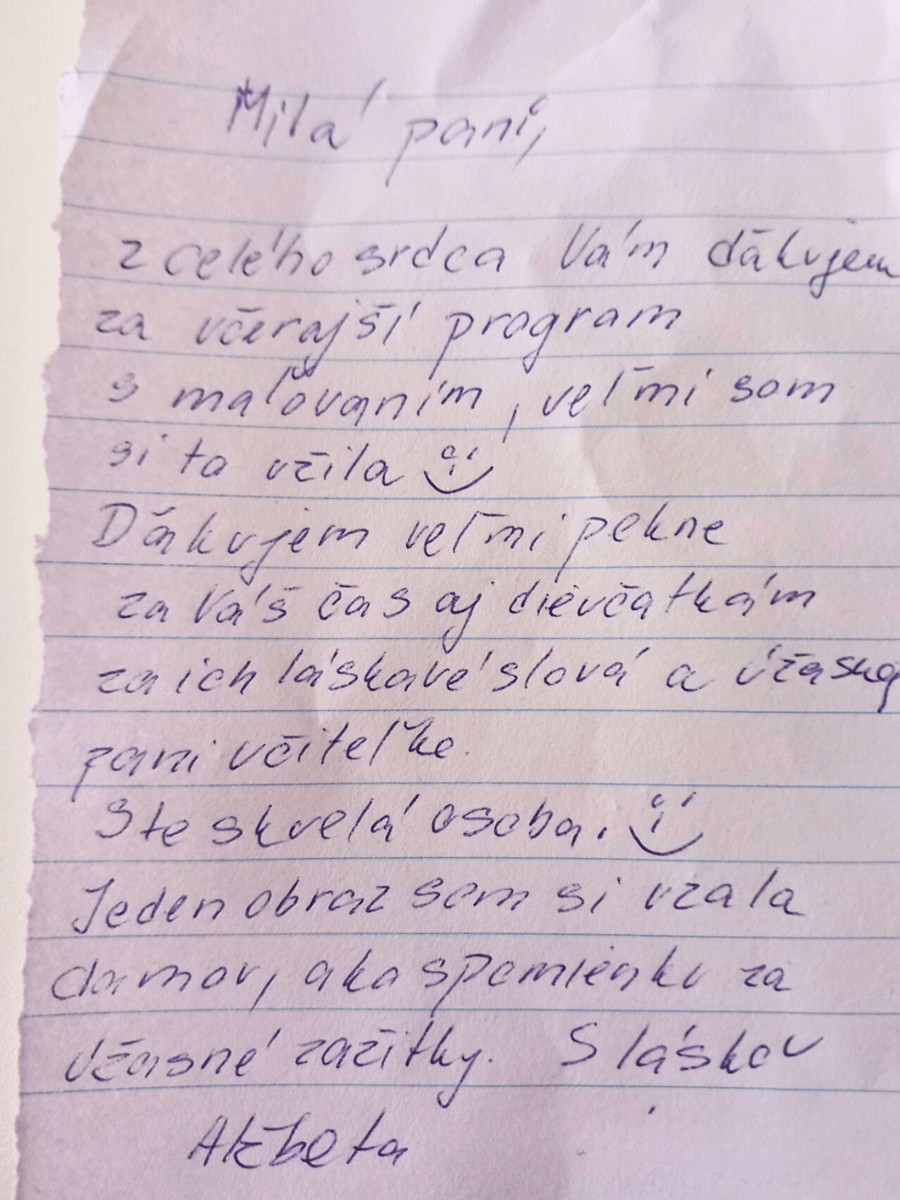 Milá pani,
z celého srdca Vám ďakujem
za včerajší program
s maľovaním, veľmi som
si to užila
Ďakujem veľmi pekne
za Váš čas aj dievčatkám
za ich láskavé slová a úžasnej
pani učiteľke.
Ste skvelá osoba.
Jeden obraz som si vzala
domov, ako spomienku za
úžasné zážitky. S láskou
Alžbeta